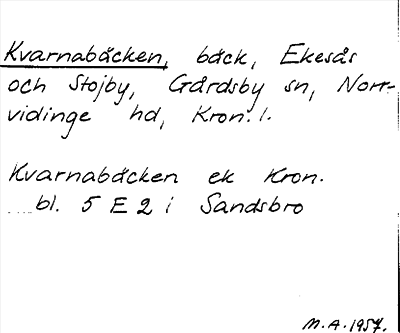 Kvarnabäcken, bäck, Ekesås
och Stojby, Gårdsby sn, Norr-
vidinge hd, Kron. l.
Kvarnabäcken ek Kron.
bl. 5 E 2 i Sandsbro
M.A. 1957.